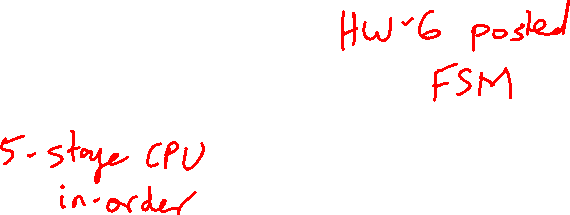 HW-6 posted
FSM
5-stage CPU
in-order